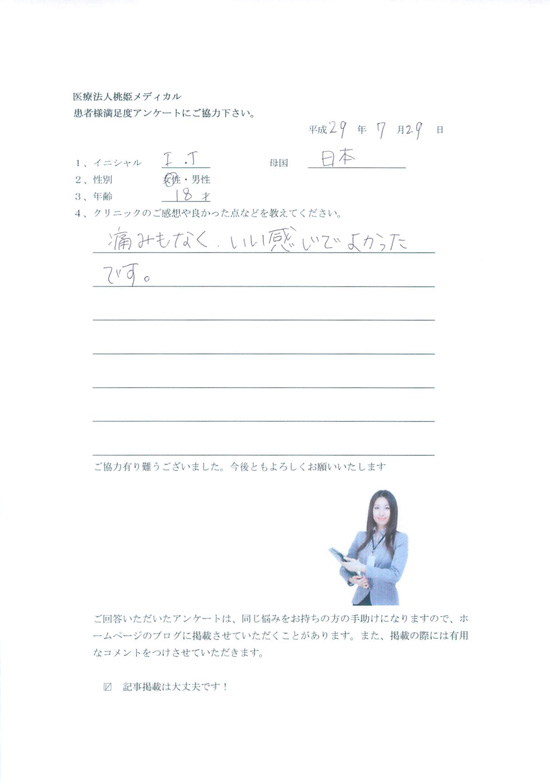 医療法人桃姫メディカル
患者様満足度アンケートにご協力下さい。
平成29年7月29日
1、イニシャル I.T 母国 日本
2、性別 女性・男性
3、年齢 18才
4、クリニックのご感想や良かった点などを教えてください。
痛みもなく、いい感じでよかった
です。
ご協力有り難うございました。今後ともよろしくお願いいたします
ご回答いただいたアンケートは、同じ悩みをお持ちの方の手助けになりますので、ホ
ームページのブログに掲載させていただくことがあります。また、掲載の際には有用
なコメントをつけさせていただきます。
☑ 記事掲載は大丈夫です！